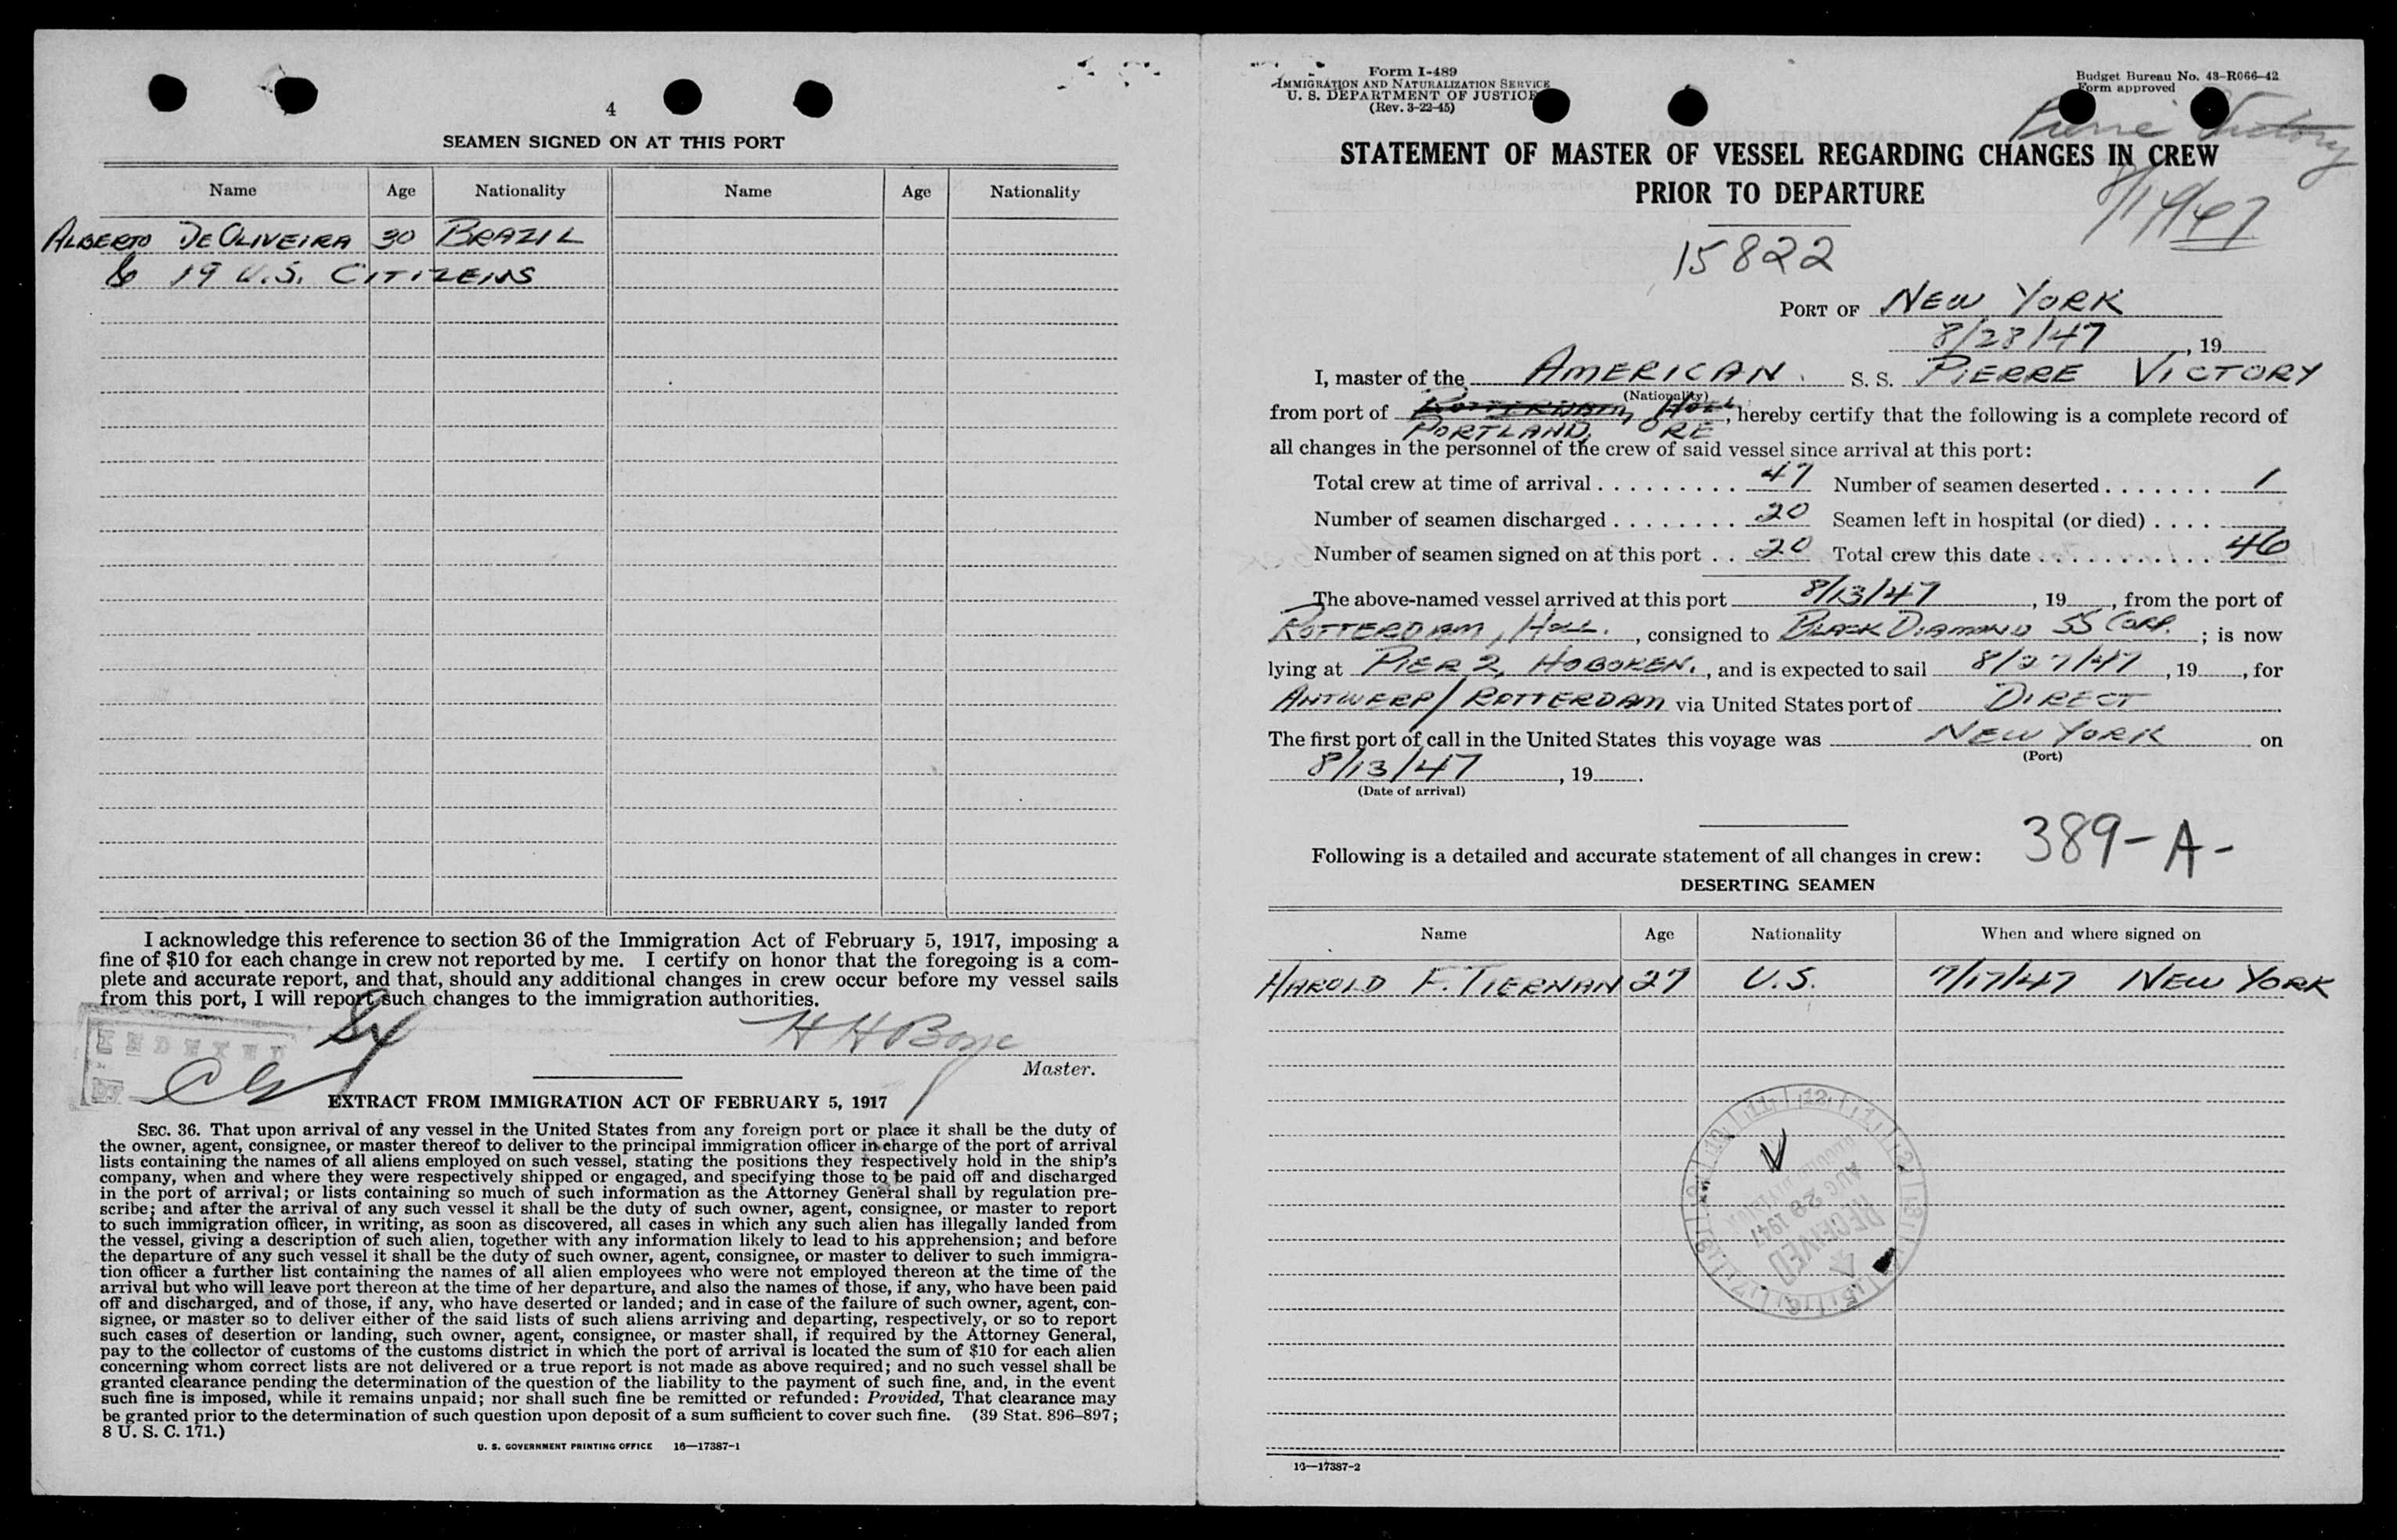 4
SEAMEN SIGNED ON AT THIS PORT
Name Age Nationality Name Age Nationality
ALBERTO DE OLIVEIRA 30 BRAZIL
& 19 U.S. CITIZENS
I acknowledge this reference to section 36 of the Immigration Act of February 5, 1917, imposing a
fine of $10 for each change in crew not reported by me. I certify on honor that the foregoing is a com-
plete and accurate report, and that, should any additional changes in crew occur before my vessel sails
from this port, I will report such changes to the immigration authorities.
INDEXED
H H Boye
Master.
EXTRACT FROM IMMIGRATION ACT OF FEBRUARY 5, 1917
SEC. 36. That upon arrival of any vessel in the United States from any foreign port or place it shall be the duty of
the owner, agent, consignee, or master thereof to deliver to the principal immigration officer in charge of the port of arrival
lists containing the names of all aliens employed on such vessel, stating the positions they respectively hold in the ship's
company, when and where they were respectively shipped or engaged, and specifying those to be paid off and discharged
in the port of arrival; or lists containing so much of such information as the Attorney General shall by regulation pre-
scribe; and after the arrival of any such vessel it shall be the duty of such owner, agent, consignee, or master to report
to such immigration officer, in writing, as soon as discovered, all cases in which any such alien has illegally landed from
the vessel, giving a description of such alien, together with any information likely to lead to his apprehension; and before
the departure of any such vessel it shall be the duty of such owner, agent, consignee, or master to deliver to such immigra-
tion officer a further list containing the names of all alien employees who were not employed thereon at the time of the
arrival but who will leave port thereon at the time of her departure, and also the names of those, if any, who have been paid
off and discharged, and of those, if any, who have deserted or landed; and in case of the failure of such owner, agent, con-
signee, or master so to deliver either of the said lists of such aliens arriving and departing, respectively, or so to report
such cases of desertion or landing, such owner, agent, consignee, or master shall, if required by the Attorney General,
pay to the collector of customs of the customs district in which the port of arrival is located the sum of $10 for each alien
concerning whom correct lists are not delivered or a true report is not made as above required; and no such vessel shall be
granted clearance pending the determination of the question of the liability to the payment of such fine, and, in the event
such fine is imposed, while it remains unpaid; nor shall such fine be remitted or refunded: Provided, That clearance may
be granted prior to the determination of such question upon deposit of a sum sufficient to cover such fine. (39 Stat. 896–897;
8 U. S. C. 171.)
U. S. GOVERNMENT PRINTING OFFICE 16—17387-1
Form I-489
IMMIGRATION AND NATURALIZATION SERVICE
U. S. DEPARTMENT OF JUSTICE
(Rev. 3-22-45)
Budget Bureau No. 43-R066-42
Form approved
Pierre Victory
STATEMENT OF MASTER OF VESSEL REGARDING CHANGES IN CREW
PRIOR TO DEPARTURE
8/14/47
15822
PORT OF NEW YORK
8/28/47, 19
I, master of the AMERICAN S. S. PIERRE VICTORY
(Nationality)
from port of ROTTERDAM, HOLL, hereby certify that the following is a complete record of
PORTLAND, ORE
all changes in the personnel of the crew of said vessel since arrival at this port:
Total crew at time of arrival . . . . . . . . . 47 Number of seamen deserted . . . . . . . 1
Number of seamen discharged . . . . . . . . 20 Seamen left in hospital (or died) . . . .
Number of seamen signed on at this port . . 20 Total crew this date . . . . . . . . . . . 46
The above-named vessel arrived at this port 8/13/47, 19, from the port of
ROTTERDAM, HOLL., consigned to BLACK DIAMOND SS CORP.; is now
lying at PIER 2, HOBOKEN., and is expected to sail 8/27/47, 19, for
ANTWERP/ROTTERDAM via United States port of DIRECT
The first port of call in the United States this voyage was NEW YORK on
(Port)
8/13/47, 19.
(Date of arrival)
389-A-
Following is a detailed and accurate statement of all changes in crew:
DESERTING SEAMEN
Name Age Nationality When and where signed on
HAROLD F. TIERNAN 27 U.S. 7/17/47 NEW YORK
AUG 28 1947
RECEIVED
16—17387-2